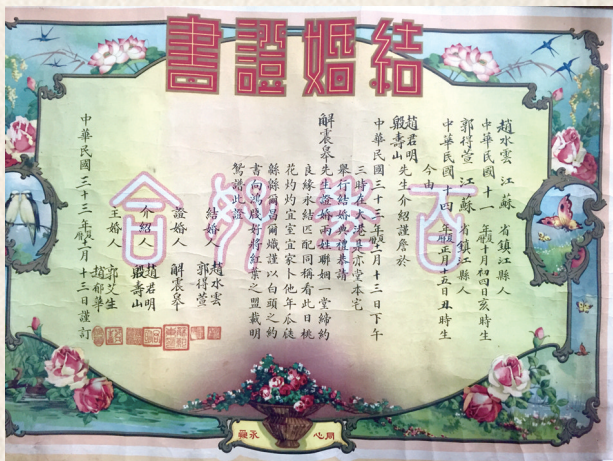 結婚證書
趙水雲 江蘇省鎮江縣人
中華民國十一年曆十月初四日亥時生
郭得萱 江蘇省鎮江縣人
中華民國十四年曆正月十五日丑時生
今由
趙君明
殷壽山
先生介紹謹詹於
中華民國三十三年曆二月十三日下午
三時在大港亦堂本宅
舉行結婚典禮恭請
解震皋先生證婚兩姓聯姻一堂締約
良緣永結匹配同稱看此日桃
花灼灼宜室宜家卜他年瓜瓞
緜緜爾昌爾熾謹以白頭之約
書向鴻牋好將紅葉之盟載明
鴛譜此證
結婚人 趙水雲
郭得萱
證婚人 解震皋
介紹人 趙君明
殷壽山
主婚人 郭艾生
趙郁華
中華民國三十三年曆月十三日謹訂
同心 永